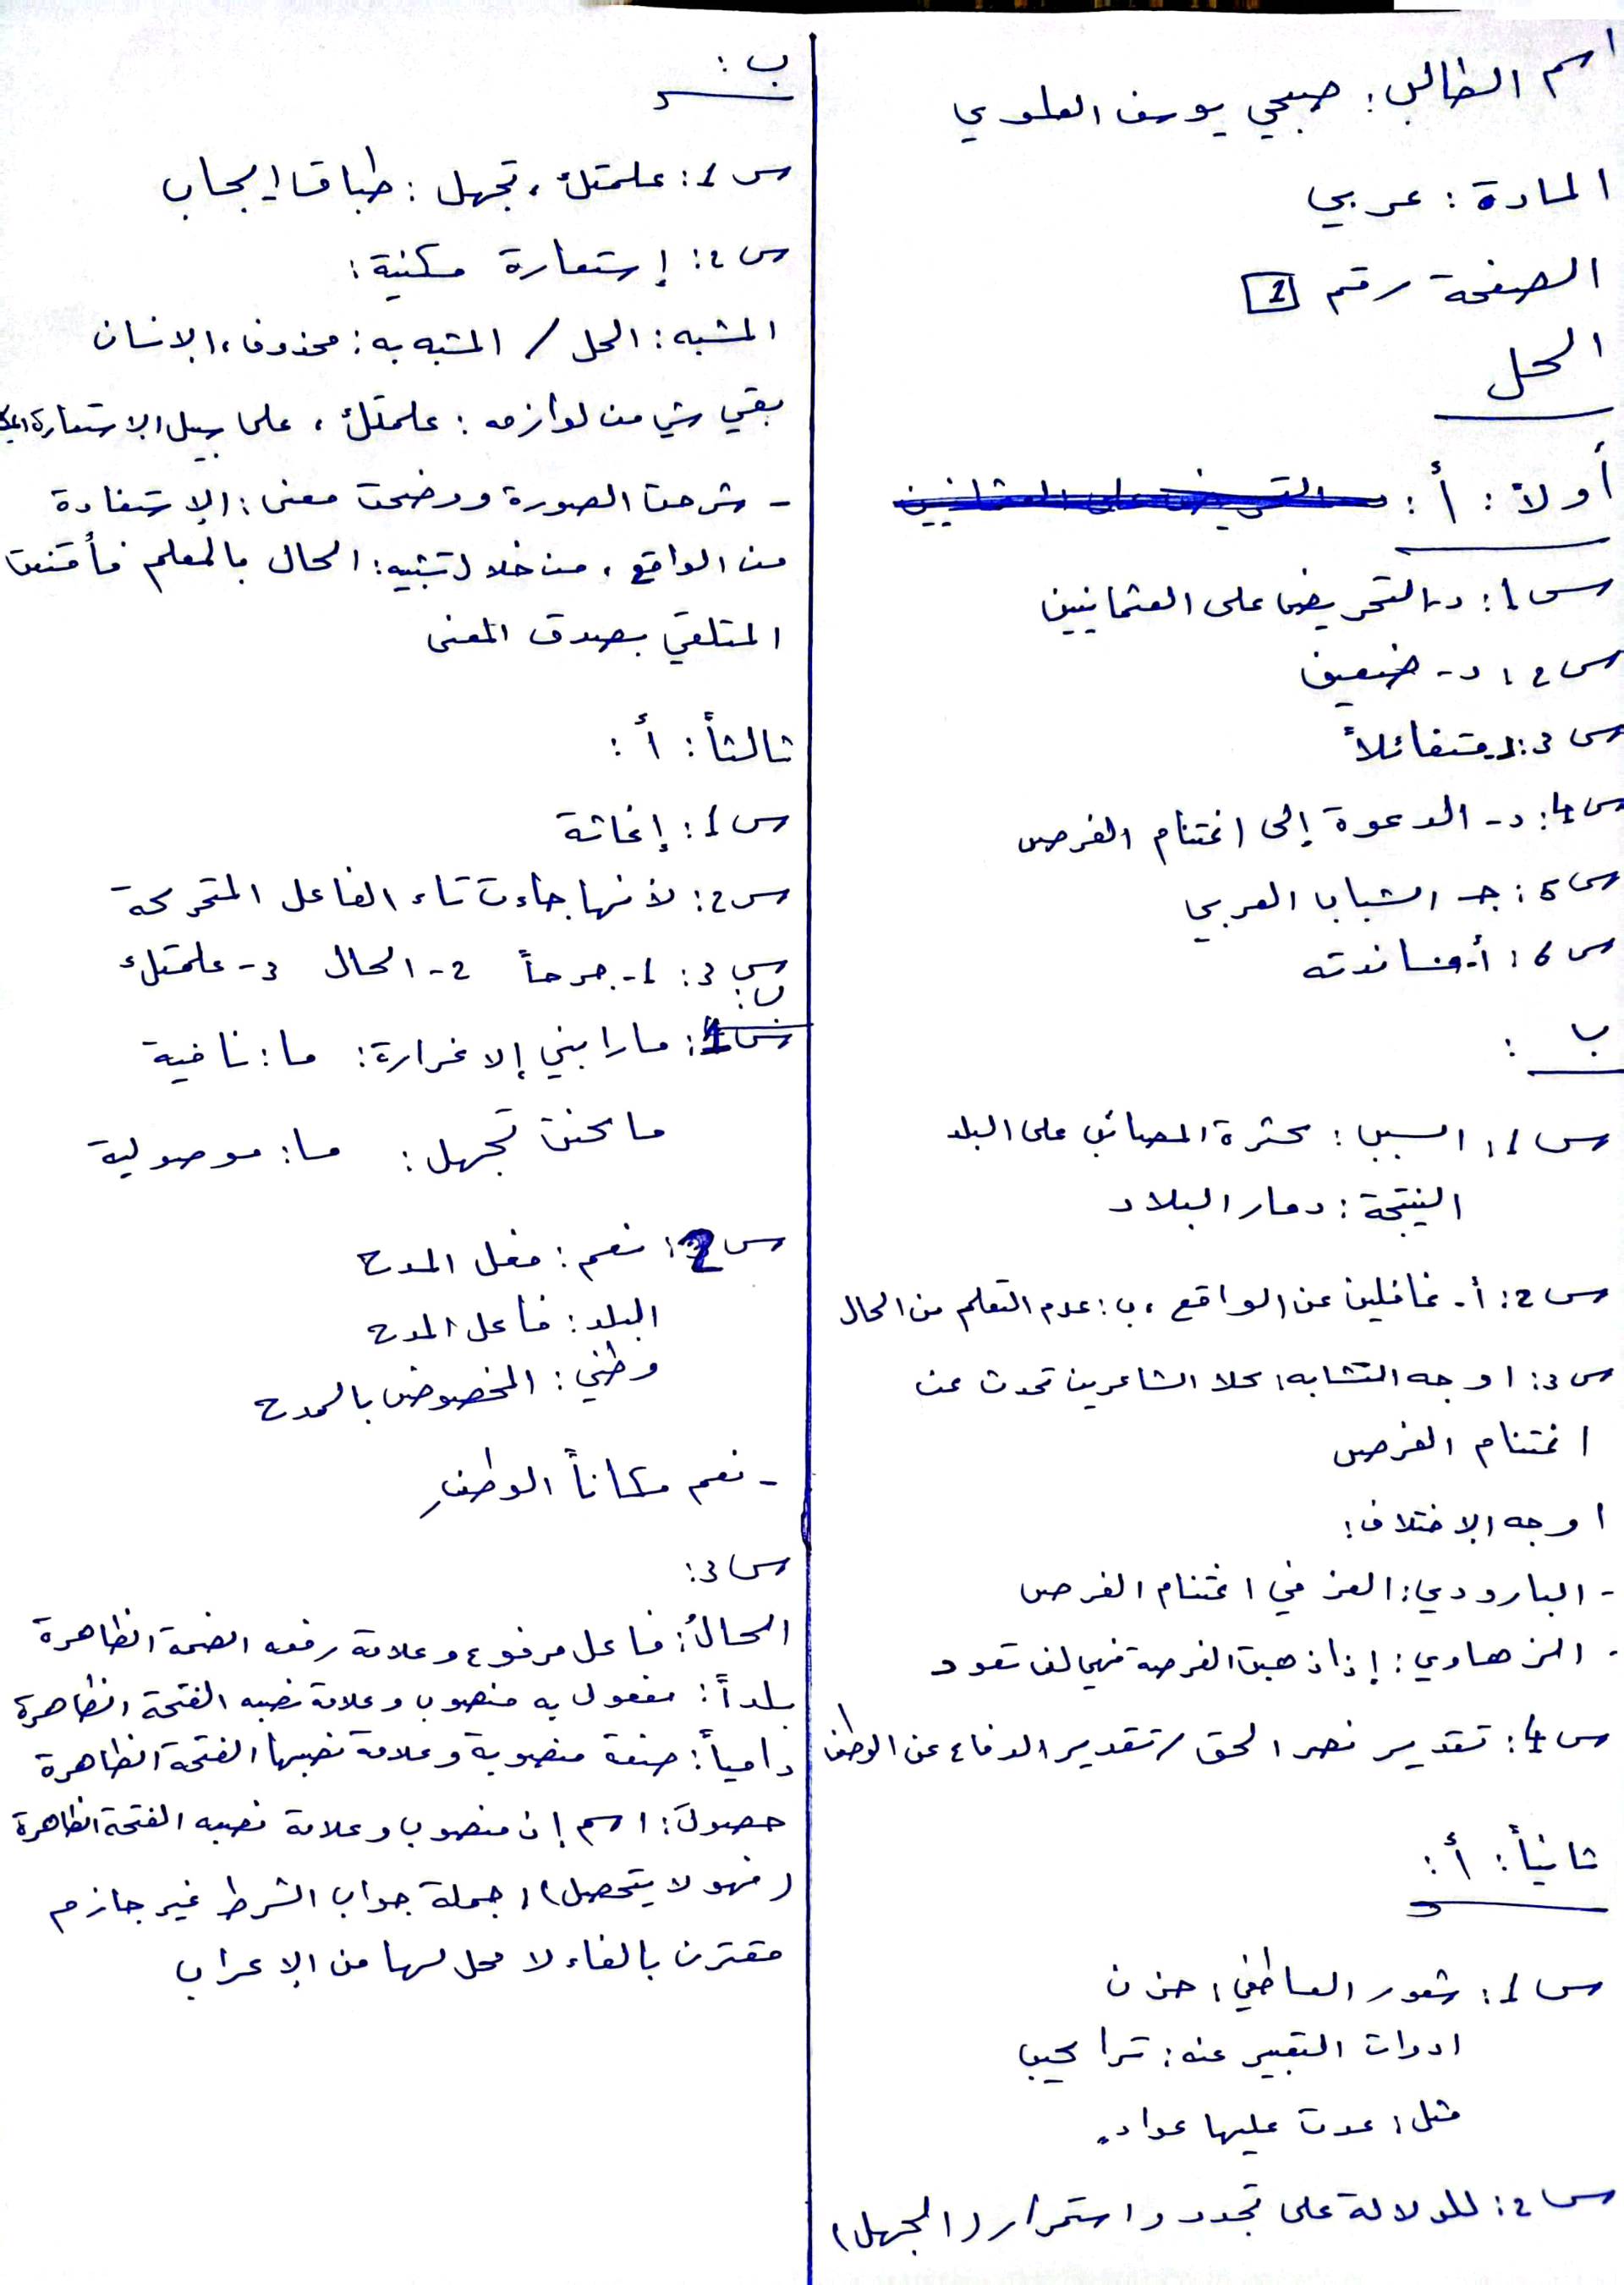 اسم الطالب : صبحي يوسف العلوي
المادة : عربي
الصفحة رقم 1
الحل
أولاً : أ :
س1 : د- التحريض على العثمانيين
س2 : د- ضعيف
س3 : د- متفائلاً
س4 : د- الدعوة إلى اغتنام الفرص
س5 : جـ الشباب العربي
س6 : أ- مساندته
ب :
س1 : السبب : كثرة المصائب على البلد
النتيجة : دمار البلاد
س2 : أ- غافلين عن الواقع ، ب : عدم التعلم من الحال
س3 : اوجه التشابه : كلا الشاعرين تحدث عن
اغتنام الفرص
اوجه الاختلاف :
- البارودي : العز في اغتنام الفرص
- الزهاوي : إذا ذهبت الفرصة فهي لن تعود
س4 : تقدير نصر الحق / تقدير الدفاع عن الوطن
ثانياً : أ :
س1 : شعور العاطفي : حزن
ادوات التعبير عنه : تراكيب
مثل : عدت عليها عواد
س2 : للدلالة على تجدد واستمرار (الجهل)
ب :
س1 : علمتك ، تجهل : طباق إيجاب
س2 : إستعارة مكنية :
المشبه : الحل / المشبه به : محذوف ، الانسان
بقي شي من لوازمه : علمتك ، على سبيل الاستعارة
- شرحت الصورة ووضحت معنى : الاستفادة
من الواقع ، من خلال تشبيه : الحال بالمعلم فأقنعت
المتلقي بصدق المعنى
ثالثاً : أ :
س1 : إغاثة
س2 : لأنها جاءت تاء الفاعل المتحركة
س3 : 1- جرحاً 2- الحال 3- علمتك
ب :
س1 : ما رابني إلا غرارة : ما : نافية
ما كنت تجهل : ما : موصولية
س2 : نعم : فعل المدح
البلد : فاعل المدح
وطني : المخصوص بالمدح
- نعم مكاناً الوطن
س3 :
الحالُ : فاعل مرفوع وعلامة رفعه الضمة الظاهرة
بلداً : مفعول به منصوب وعلامة نصبه الفتحة الظاهرة
دامياً : صفة منصوبة وعلامة نصبها الفتحة الظاهرة
حصولَ : اسم إن منصوب وعلامة نصبه الفتحة الظاهرة
(فهو لا يتحصل) : جملة جواب الشرط غير جازم
مقترن بالفاء لا محل لها من الإعراب